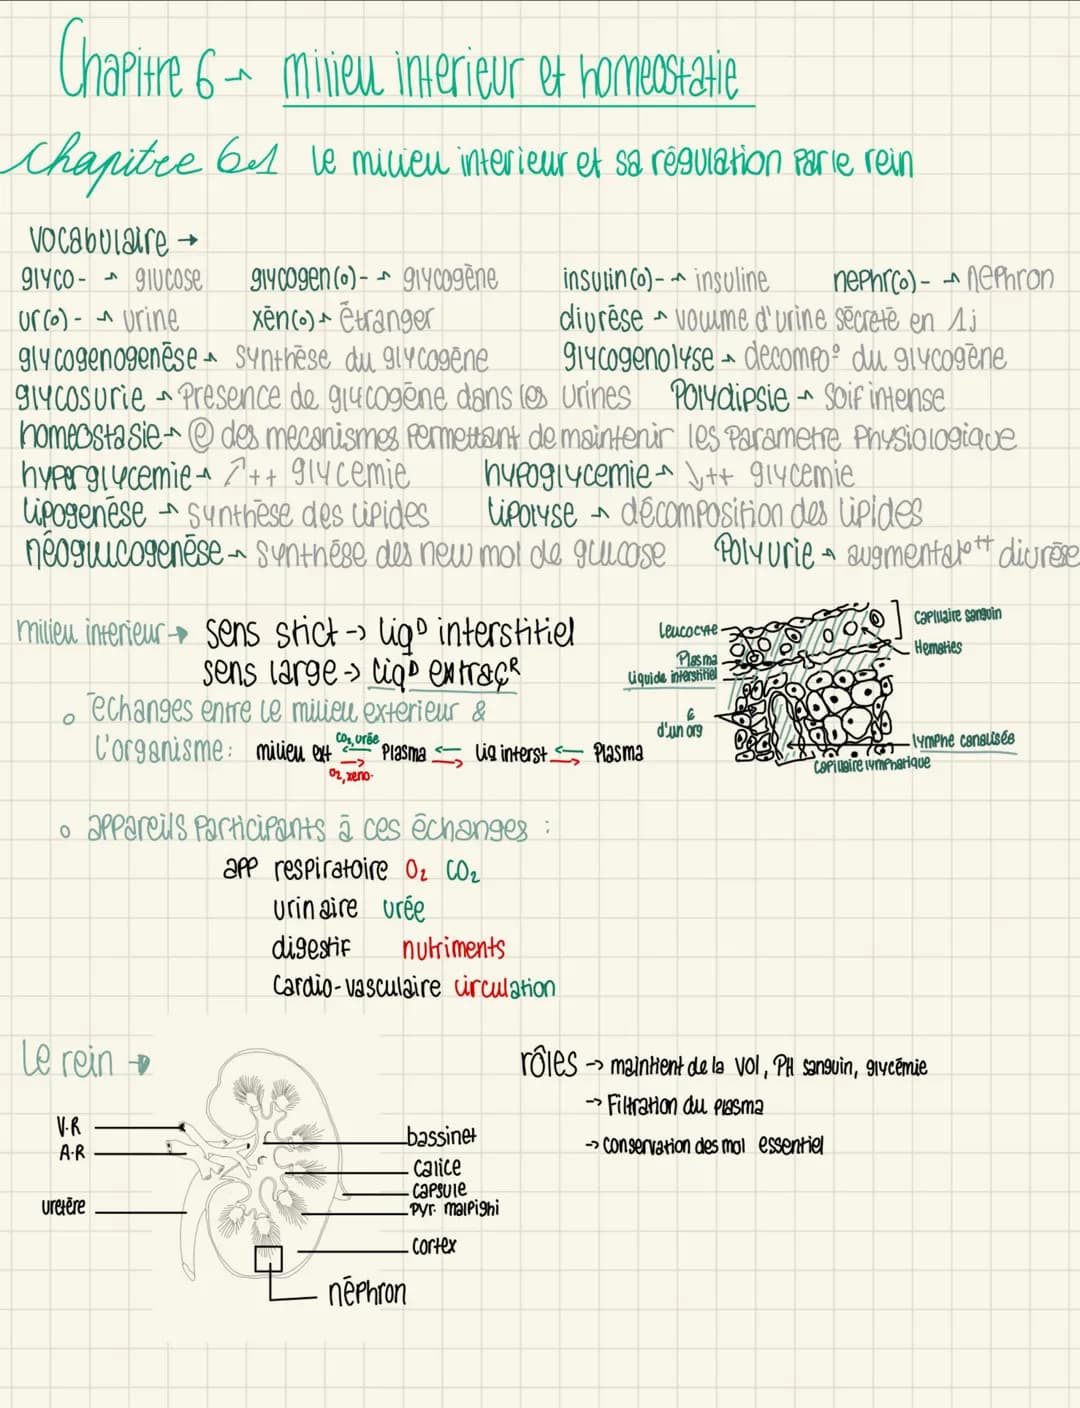 Chapitre 6 → milieu interieur et homeostatie
Chapitre 6.1 le milieu interieur et sa régulation par le rein
vocabulaire →
glyco- → glucose glycogen(o)- → glycogène insulin(o)- → insuline nephr(o)- → nephron
ur(o)- → urine xén(o) → étranger diurèse → volume d'urine sécreté en 1j
glycogenogenèse → synthèse du glycogène glycogenolyse → decompo° du glycogène
glycosurie → Présence de glycogène dans les urines Polydipsie → Soif intense
homeostasie → @ des mecanismes permettant de maintenir les parametre Physiologique
hyperglycemie → ↗++ glycemie hypoglycemie → ↘++ glycemie
Lipogenèse → synthèse des lipides Lipolyse → décomposition des lipides
néoglucogenèse → synthèse des new mol de glucose Polyurie → augmentat°++ diurèse
milieu interieur → sens stict → liqD interstitiel
sens large → liqD extraçR
° échanges entre le milieu exterieur &
l'organisme : milieu ext CO₂, urée ⇆ O₂, xeno. Plasma ⇆ liq interst ⇆ Plasma
Leucocyte
Plasma
liquide interstitiel
¢
d'un org
Capillaire sanguin
Hematies
lymphe canalisée
capillaire lymphatique
° appareils participants à ces échanges :
app respiratoire O₂ CO₂
urinaire urée
digestif nutriments
Cardio-vasculaire circulation
Le rein →
V.R
A.R
uretère
bassinet
calice
capsule
Pyr. malpighi
cortex
néphron
rôles → maintient de la vol, PH sanguin, glycémie
→ Filtration du plasma
→ conservation des mol essentiel